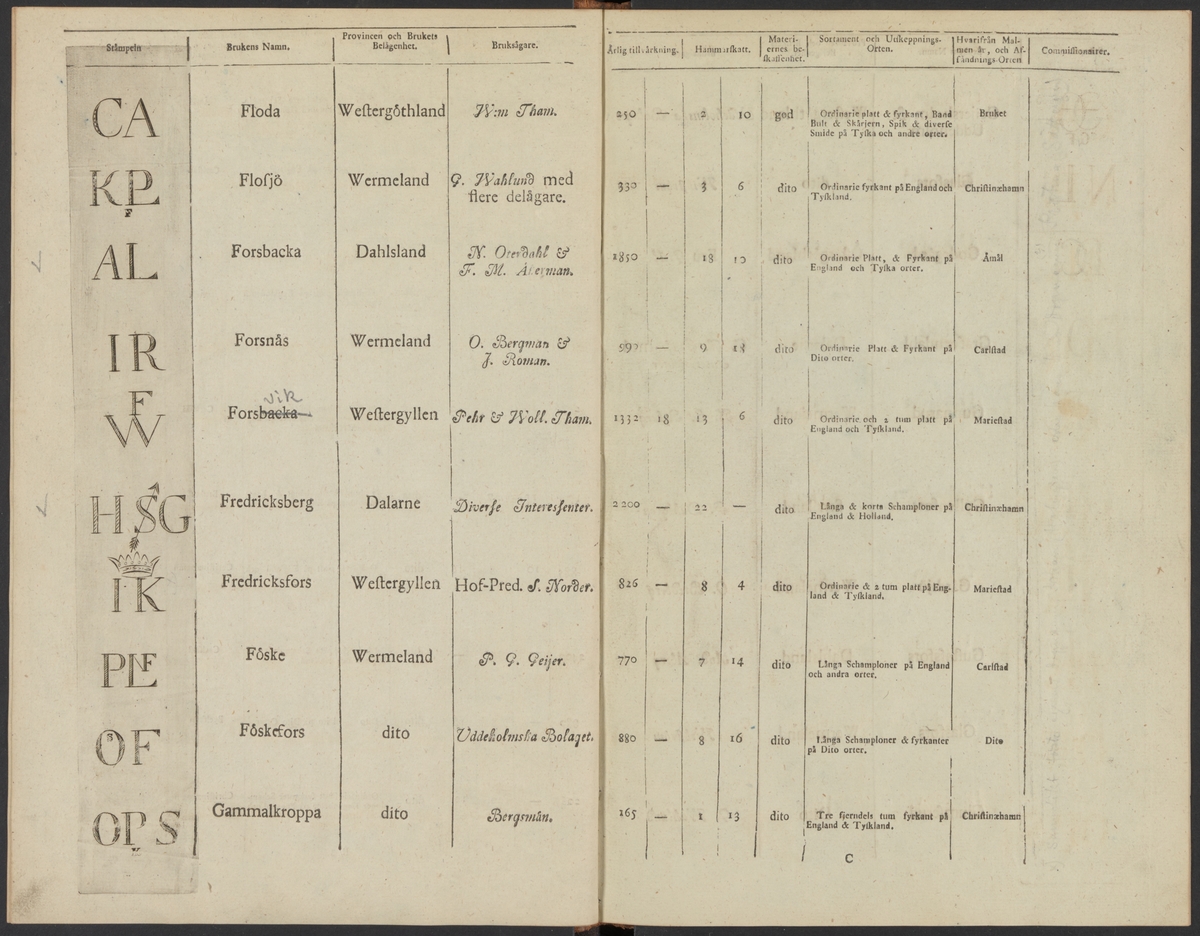 Stämpeln Brukens Namn. Provincen och Brukets Belägenhet. Bruksägare. Årlig tillvärkning. Hammarskatt. Materiernes beskaffenhet. Sortament och Utskeppnings-Orten. Hvarifrån Malmen är, och Afsändnings-Orten Commissionairer.
CA Floda Weſtergöthland W:m Tham. 250 — 2 10 god Ordinarie platt & fyrkant, Band
Bult & Skärjern, Spik & diverſe
Smide på Tyſka och andre orter. Bruket
KP Floſjö Wermeland G. Wahlund med 330 — 3 6 dito Ordinarie fyrkant på England och Chriſtinæhamn
F flere delägare. Tyſkland.
AL Forsbacka Dahlsland N. Oterdahl & 1850 — 18 10 dito Ordinarie Platt, & Fyrkant på Åmål
F. M. Åkerman. England och Tyſka orter.
IR Forsnäs Wermeland O. Bergman & 990 — 9 18 dito Ordinarie Platt & Fyrkant på Carlſtad
J. Roman. Dito orter.
vik
F
W Forsbacka Weſtergyllen Pehr & Woll. Tham. 1332 18 13 6 dito Ordinarie och 2 tum platt på Marieſtad
England och Tyſkland.
HSG Fredricksberg Dalarne Diverſe Intereſſenter. 2200 — 22 — dito Långa & korta Schamploner på Chriſtinæhamn
England & Holland.
IK Fredricksfors Weſtergyllen Hof-Pred. S. Norder. 826 — 8 4 dito Ordinarie & 2 tum platt på Eng- Marieſtad
land & Tyſkland.
PLF Föske Wermeland P. G. Geijer. 770 — 7 14 dito Långa Schamploner på England Carlſtad
och andra orter.
OF Föskefors dito Uddeholmska Bolaget. 880 — 8 16 dito Långa Schamploner & fyrkanter Dito
3 på Dito orter.
OPS Gammalkroppa dito Bergsmän. 165 — 1 13 dito Tre fjerndels tum fyrkant på Chriſtinæhamn
England & Tyſkland.
C